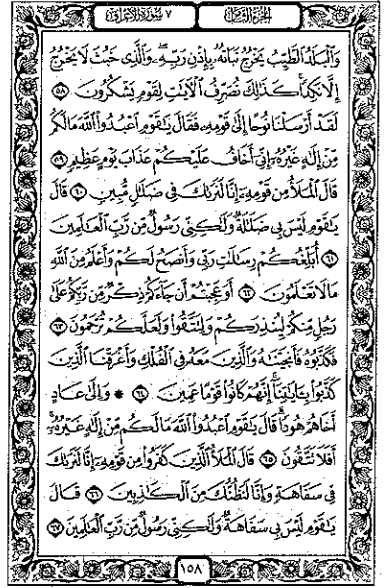 الجزء الثامن
٧ سورة الأعراف
وَالْبَلَدُ الطَّيِّبُ يَخْرُجُ نَبَاتُهُ بِإِذْنِ رَبِّهِ وَالَّذِي خَبُثَ لَا يَخْرُجُ
إِلَّا نَكِدًا كَذَلِكَ نُصَرِّفُ الْآيَاتِ لِقَوْمٍ يَشْكُرُونَ ٥٨
لَقَدْ أَرْسَلْنَا نُوحًا إِلَى قَوْمِهِ فَقَالَ يَاقَوْمِ اعْبُدُوا اللَّهَ مَا لَكُمْ
مِنْ إِلَهٍ غَيْرُهُ إِنِّي أَخَافُ عَلَيْكُمْ عَذَابَ يَوْمٍ عَظِيمٍ ٥٩
قَالَ الْمَلَأُ مِنْ قَوْمِهِ إِنَّا لَنَرَاكَ فِي ضَلَالٍ مُبِينٍ ٦٠ قَالَ
يَاقَوْمِ لَيْسَ بِي ضَلَالَةٌ وَلَكِنِّي رَسُولٌ مِنْ رَبِّ الْعَالَمِينَ
٦١ أُبَلِّغُكُمْ رِسَالَاتِ رَبِّي وَأَنْصَحُ لَكُمْ وَأَعْلَمُ مِنَ اللَّهِ
مَا لَا تَعْلَمُونَ ٦٢ أَوَعَجِبْتُمْ أَنْ جَاءَكُمْ ذِكْرٌ مِنْ رَبِّكُمْ عَلَى
رَجُلٍ مِنْكُمْ لِيُنْذِرَكُمْ وَلِتَتَّقُوا وَلَعَلَّكُمْ تُرْحَمُونَ ٦٣
فَكَذَّبُوهُ فَأَنْجَيْنَاهُ وَالَّذِينَ مَعَهُ فِي الْفُلْكِ وَأَغْرَقْنَا الَّذِينَ
كَذَّبُوا بِآيَاتِنَا إِنَّهُمْ كَانُوا قَوْمًا عَمِينَ ٦٤ وَإِلَى عَادٍ
أَخَاهُمْ هُودًا قَالَ يَاقَوْمِ اعْبُدُوا اللَّهَ مَا لَكُمْ مِنْ إِلَهٍ غَيْرُهُ
أَفَلَا تَتَّقُونَ ٦٥ قَالَ الْمَلَأُ الَّذِينَ كَفَرُوا مِنْ قَوْمِهِ إِنَّا لَنَرَاكَ
فِي سَفَاهَةٍ وَإِنَّا لَنَظُنُّكَ مِنَ الْكَاذِبِينَ ٦٦ قَالَ
يَاقَوْمِ لَيْسَ بِي سَفَاهَةٌ وَلَكِنِّي رَسُولٌ مِنْ رَبِّ الْعَالَمِينَ ٦٧
١٥٨